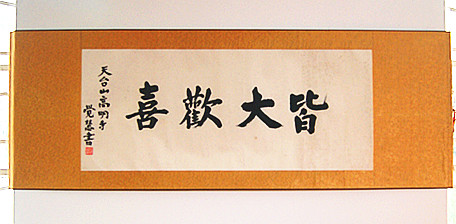 皆大歡喜
天台山高明寺
覺慧書